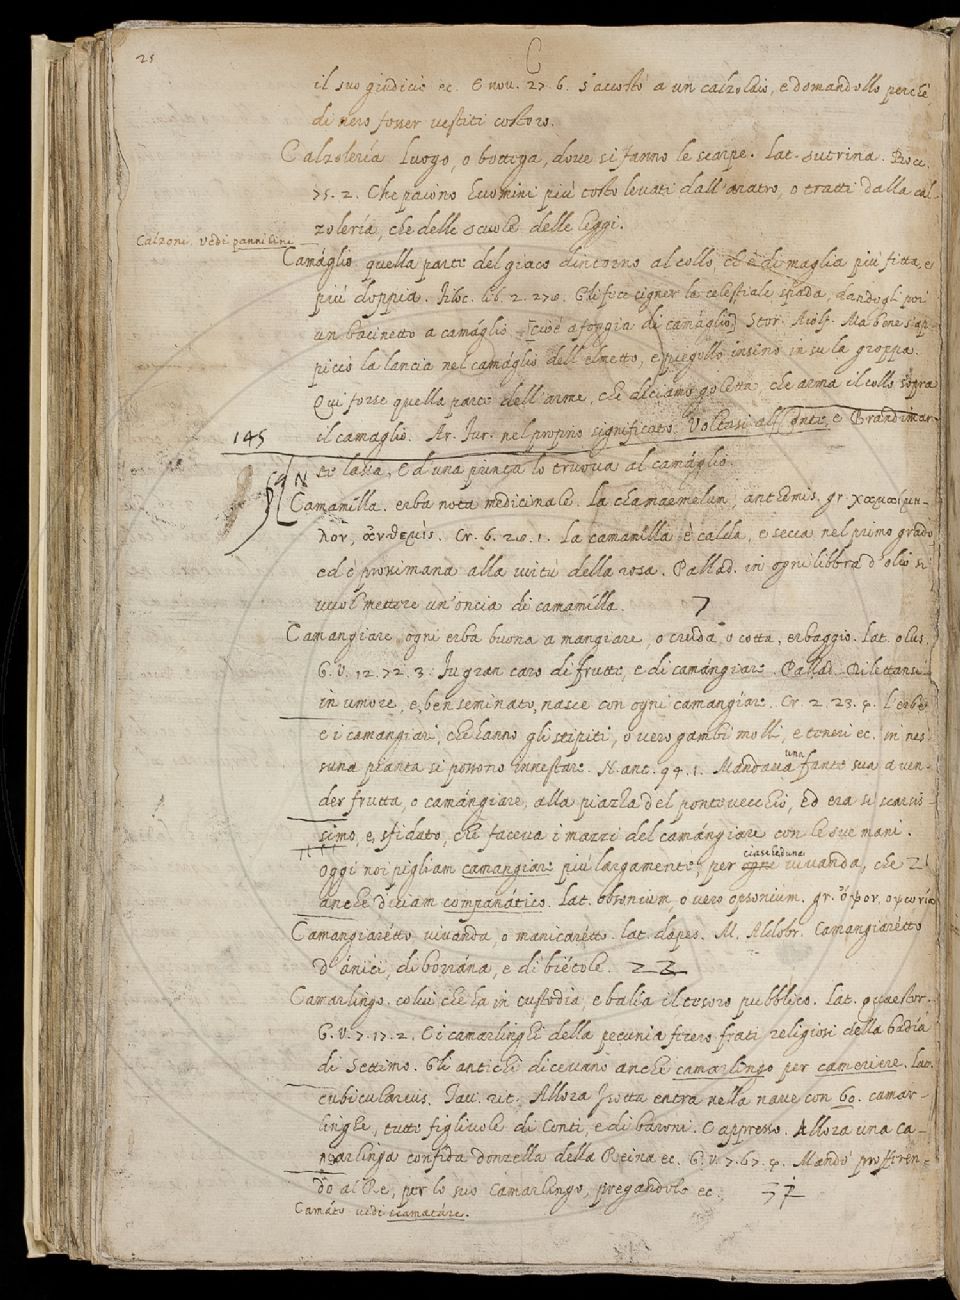 25
C
il suo giudicio ec. E nou. 27. 6. s'accostò a un calzolaio, e domandollo perchè
di nero fosser uestiti costoro.
Calzolería Luogo, o bottega, doue si fanno le scarpe. Lat. sutrina. Bocc.
75. 2. Che paiono huomini più tosto leuati dall'aratro, o tratti dalla cal
zolería, che delle scuole delle leggi.
Calzoni. vedi panni lini
Camáglio quella parte del giaco dintorno al collo, ch'è di maglia più fitta, e
più doppia. Filoc. lib. 2. 270. Gli fece cigner la celestiale spada, dandogli poi
un bacinetto a camáglio [cioè a foggia di camáglio] Stor. Aiolf. Ma bene s'ap-
piccò la lancia nel camáglio dell'elmetto, e piegollo insino in su la groppa.
Qui forse quella parte dell'arme, che diciamo goletta, che arma il collo sopra
il camaglio. Ar. Fur. nel proprio significato. Voltasi al Conte, e Brandimar-
145
te lassa, E d'una punta lo truoua al camáglio.
Camamílla. erba nota medicinale. La. chamaemelun, anthemis. gr. χαμαίμη-
λον, ἀνθεμὶς. Cr. 6. 20. 1. La camamílla è calda, e secca nel primo grado
ed è prossimana alla uirtù della rosa. Pallad. in ogni libbra d'olio si
uuol mettere un'oncia di camamílla. 7
Camangiare ogni erba buona a mangiare, o cruda, o cotta, erbaggio. Lat. olus.
G. V. 12. 72. 3. In gran caro di frutte, e di camángiare. Pallad. Dilettansi
in umore, e, ben seminato, nasce con ogni camangiare. Cr. 2. 23. 4. L'erbe
e i camangiari, che hanno gli stipiti, o uero gambi molli, e teneri ec. in nes
suna pianta si possono innestare. N. ant. 94. 1. Mandaua una fante sua a uen-
der frutta, o camángiare, alla piazza del ponte uecchio, ed era sì scarsis-
simo, e, sfidato, che faceua i mazzi del camángiare con le sue mani.
Oggi noi pigliam camangiare più largamente, per ciascheduna uiuanda, che 21
anche diciam companático. Lat. obsonium, o uero opsonium. gr. ὄψον, οψώνιον
Camangiarétto uiuanda, o manicaretto. lat. dapes. M. Aldobr. Camangiarétto
d'ánici, di borrána, e di biétole. 22
Camarlingo. colui che ha in custodia, e balìa il tesoro pubblico. Lat. quaestor.
G. V. 7. 17. 2. E i camarlinghi della pecunia fecero frati religiosi della badía
di Settimo. Gli antichi diceuano anche camarlingo per cameriere. Lat.
cubicularius. Tau. rit. Allora Isotta entra nella naue con 60. camar-
linghe, tutte figliuole di Conti, e di baroni. E appresso. Allora una ca-
marlinga confida donzella della Reina ec. G. V. 7. 67. 4. Mandò profferen-
do al Re, per lo suo Camarlingo, pregandolo ec.
Camáto vedi scamatáre.